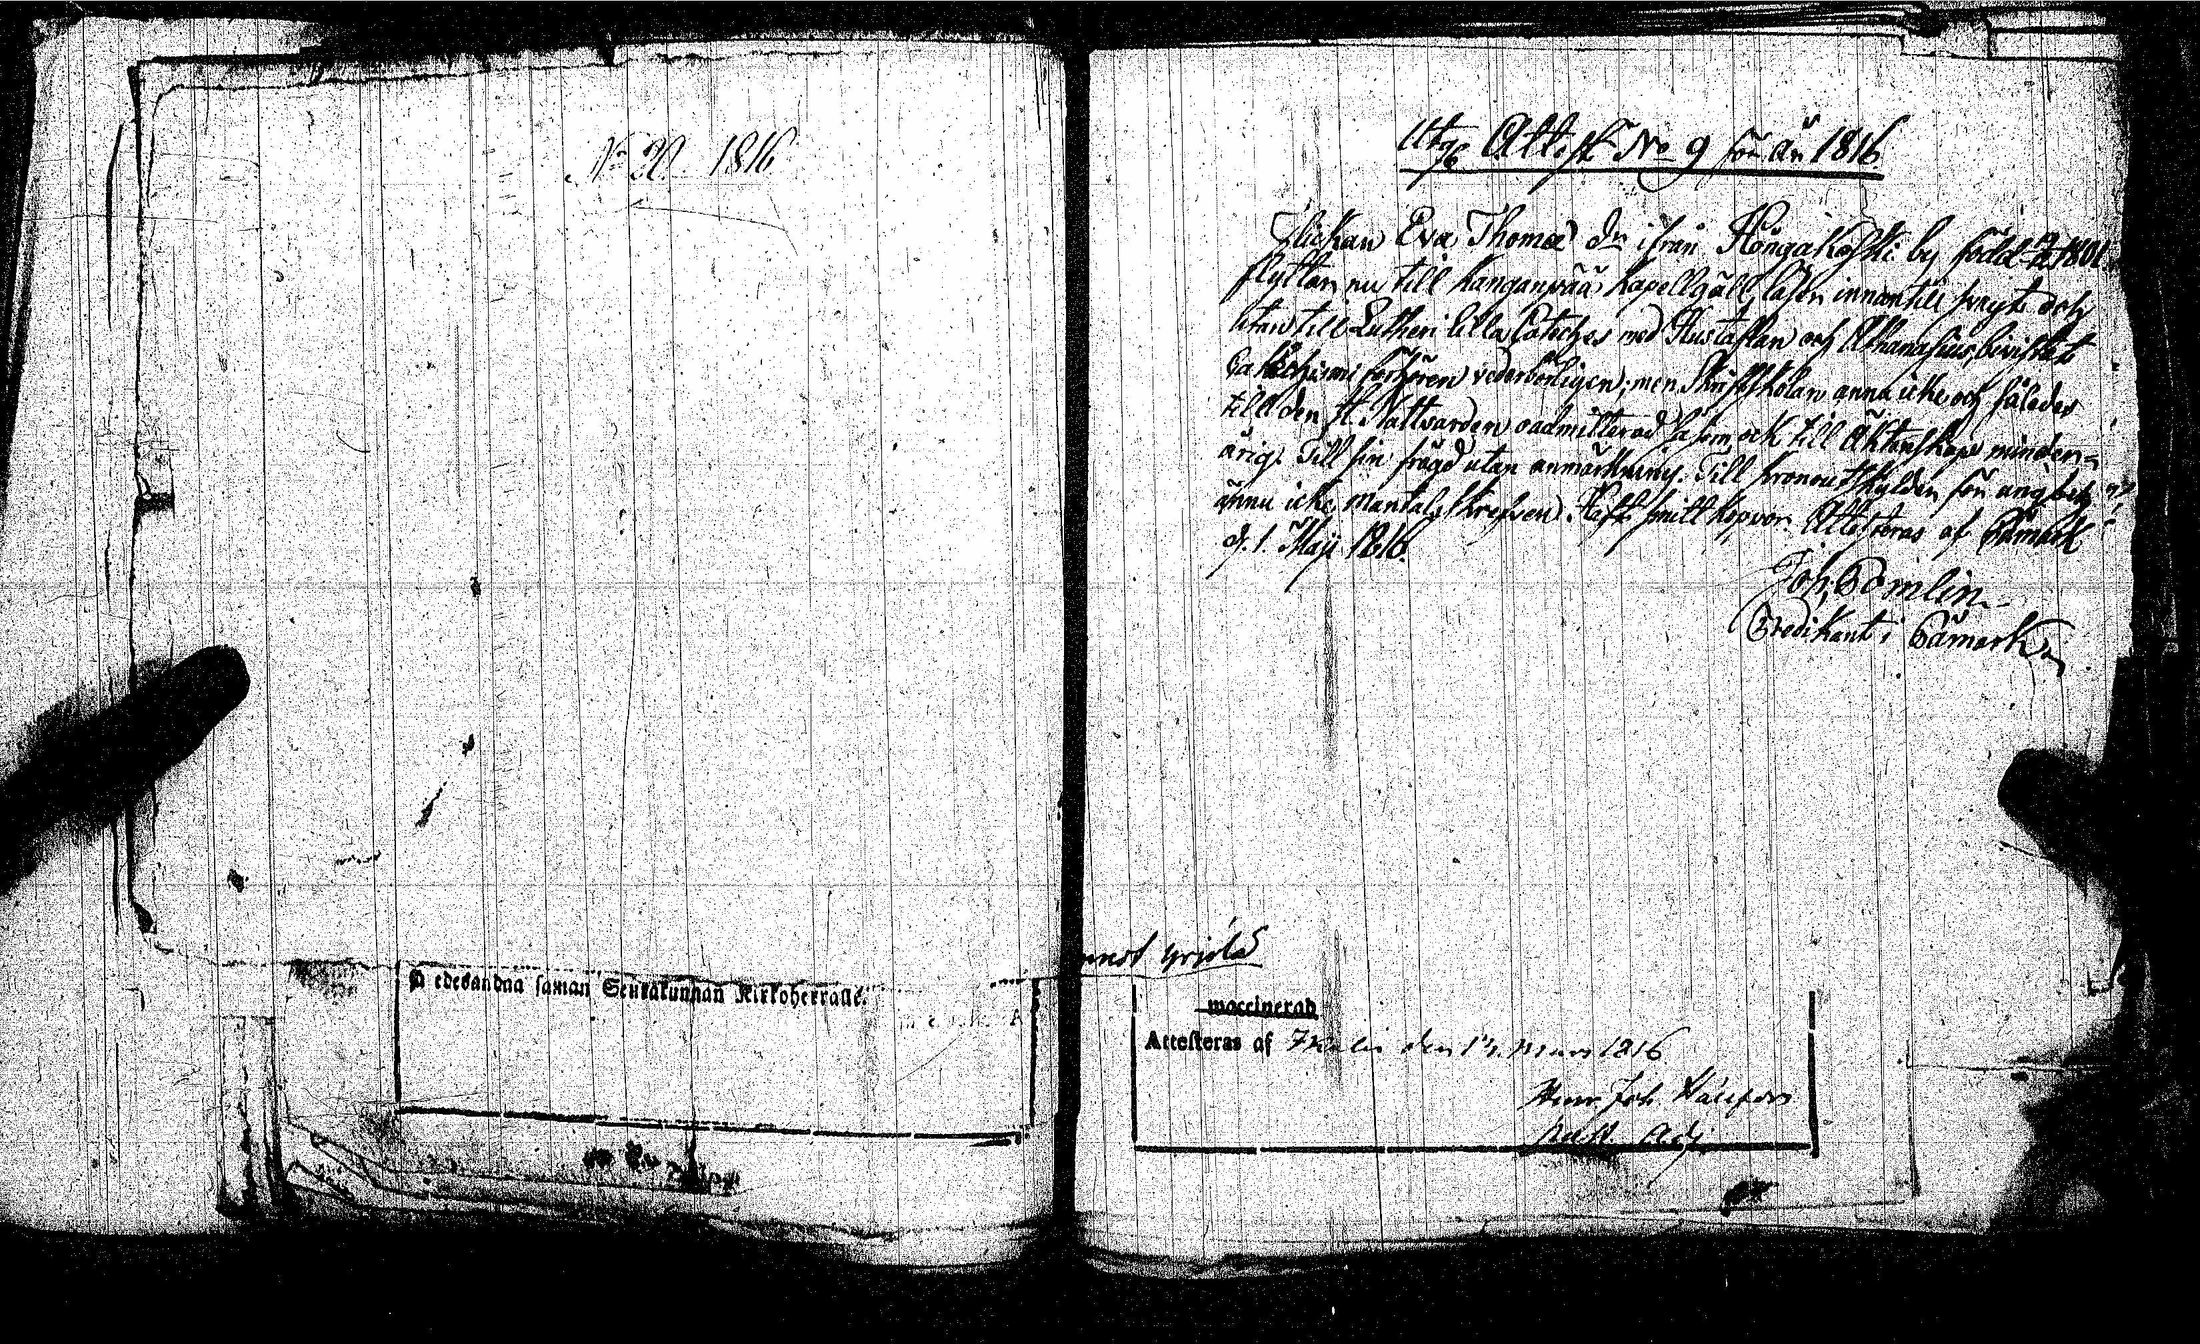 No 20. 1816
Attest No 9 för år 1816
Flickan Eva Thomæ dr ifrån Hongakoski by född 1801
flyttar nu till Kanganpää Kapellgäll, läser innantill snygt och
utantill Lutheri lilla Cateches med Hustaflan och Athanasius, bevistat
förhören vederbörligen; men Skriftskolan ännu icke och således
till den H. Nattvarden oadmitterad såsom ock till Äktenskap minder-
årig. Till sin frägd utan anmärkning. Till kronoutskylder för ung
ännu icke Mantalskrefven. Haft smittkoppor. Attesteras af Påmark
d. 1. Maji 1816.
Joh. Pomlin
Predikant i Påmark
edesandaa saman Seurakunnan Kirkoherralle.
waccinerad
Attesteras af den Mars 1816
Joh.
Adj.